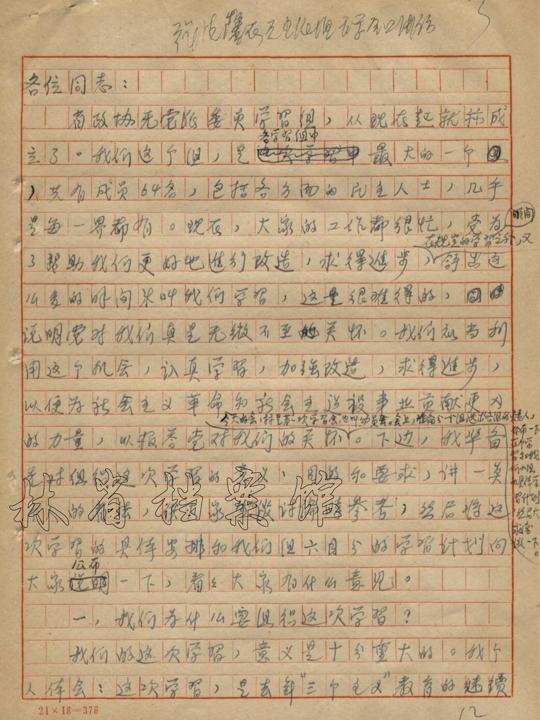 各位同志：
省政协无党派委员学习组，从现在起就算成
立了。我们这个组，是各学习组中最大的一个
，共有成员64名，包括各方面的民主人士，几乎
是每一界都有。现在，大家的工作都很忙，党为
了帮助我们更好地进行改造，求得進步，
在规定的学习之外，又
么多的时间来叫我们学习，这是很难得的，
说明党对我们真是无微不至的关怀。我们应当利
用这个机会，认真学习，加强改造，求得進步，
以便为社会主义革命和社会主义建设事业贡献更大
的力量，以报答党对我们的关怀。下边，我准备
这次学习的意义、目的和要求，讲一
参考，然后将这
次学习的具体安排和我们组六月分的学习计划向
大家公布一下，看看大家有什么意见。
一，我们为什么要组织这次学习？
我们的这次学习，意义是十分重大的。我个
人体会：这次学习，是去年"三个主义"教育的继续
林省档案馆
21×18=378
12